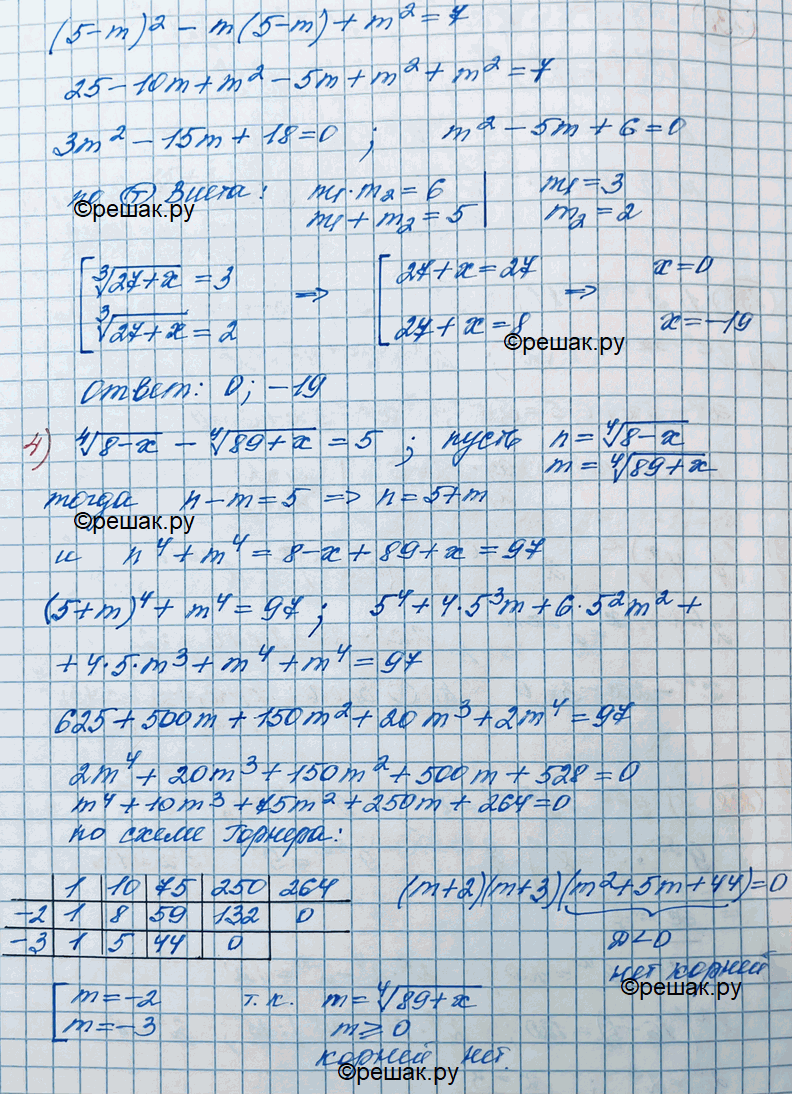 (5-m)² - m(5-m) + m² = 7
25 - 10m + m² - 5m + m² + m² = 7
3m² - 15m + 18 = 0 ; m² - 5m + 6 = 0
по (т) Виета: m₁·m₂ = 6 | m₁ = 3
m₁ + m₂ = 5 | m₂ = 2
©решак.ру
[ ∛(27+x) = 3 ⇒ [ 27+x = 27 ⇒ x = 0
[ ∛(27+x) = 2 [ 27+x = 8 x = -19
©решак.ру
Ответ: 0; -19
4) ∜(8-x) - ∜(89+x) = 5 ; пусть n = ∜(8-x)
m = ∜(89+x)
тогда n - m = 5 ⇒ n = 5+m
©решак.ру
и n⁴ + m⁴ = 8-x+89+x = 97
(5+m)⁴ + m⁴ = 97 ; 5⁴ + 4·5³m + 6·5²m² +
+ 4·5·m³ + m⁴ + m⁴ = 97
625 + 500m + 150m² + 20m³ + 2m⁴ = 97
2m⁴ + 20m³ + 150m² + 500m + 528 = 0
m⁴ + 10m³ + 75m² + 250m + 264 = 0
по схеме Горнера:
1 | 10 | 75 | 250 | 264
-2 | 1 | 8 | 59 | 132 | 0
-3 | 1 | 5 | 44 | 0
(m+2)(m+3)(m²+5m+44) = 0
D < 0
нет корней
©решак.ру
[ m = -2 т.к. m = ∜(89+x)
[ m = -3 m ⩾ 0
корней нет.
©решак.ру